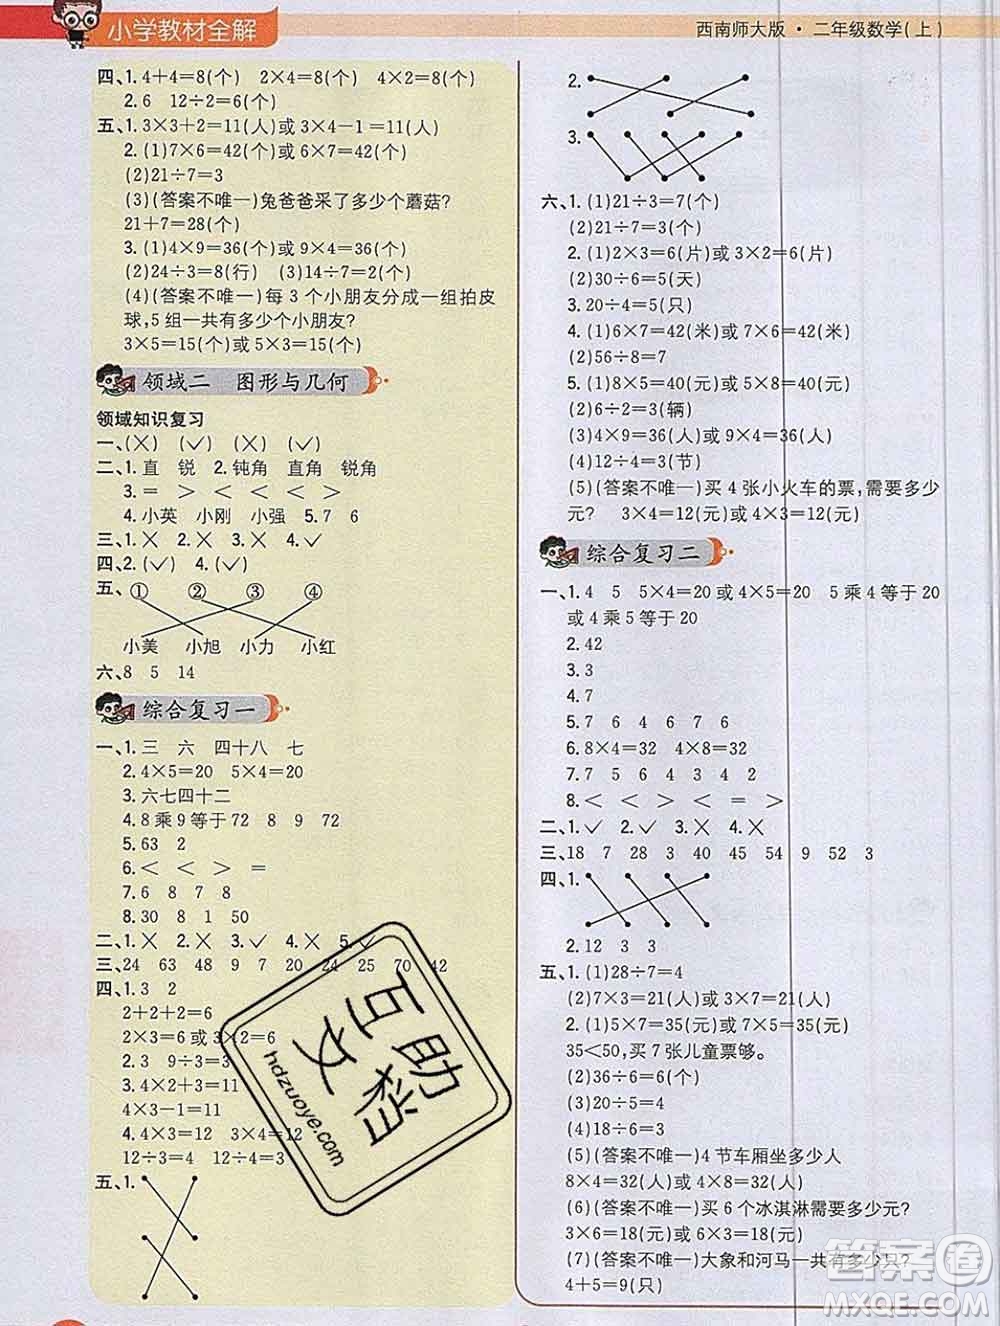 小学教材全解
西南师大版·二年级数学(上)
四、1. 4+4=8(个) 2×4=8(个) 4×2=8(个)
2. 6 12÷2=6(个)
五、1. 3×3+2=11(人)或 3×4-1=11(人)
2. (1)7×6=42(个)或 6×7=42(个)
(2)21÷7=3
(3)(答案不唯一)兔爸爸采了多少个蘑菇?
21+7=28(个)
3. (1)4×9=36(个)或 9×4=36(个)
(2)24÷3=8(行) (3)14÷7=2(个)
(4)(答案不唯一)每 3 个小朋友分成一组拍皮
球,5 组一共有多少个小朋友?
3×5=15(个)或 5×3=15(个)
领域二 图形与几何
领域知识复习
一、(×) (✓) (×) (✓)
二、1. 直 锐 2. 钝角 直角 锐角
3. = > < < > <
4. 小英 小刚 小强 5. 7 6
三、1. × 2. × 3. × 4. ✓
四、2. (✓) 4. (✓)
五、 ① ② ③ ④
小美 小旭 小力 小红
六、8 5 14
综合复习一
一、1. 三 六 四十八 七
2. 4×5=20 5×4=20
3. 六七四十二
4. 8 乘 9 等于 72 8 9 72
5. 63 2
6. < < > =
7. 6 8 7 8
8. 30 8 1 50
二、1. × 2. × 3. ✓ 4. × 5. ✓
三、24 63 48 9 7 20 24 25 70 42
四、1. 3 2
2+2+2=6
2×3=6 或 3×2=6
2. 3 9÷3=3
3. 4×2+3=11
4×3-1=11
4. 4×3=12 3×4=12
12÷3=4 12÷4=3
五、1.
2.
3.
六、1. (1)21÷3=7(个)
(2)21÷7=3(个)
2. (1)2×3=6(片)或 3×2=6(片)
(2)30÷6=5(天)
3. 20÷4=5(只)
4. (1)6×7=42(米)或 7×6=42(米)
(2)56÷8=7
5. (1)8×5=40(元)或 5×8=40(元)
(2)6÷2=3(辆)
(3)4×9=36(人)或 9×4=36(人)
(4)12÷4=3(节)
(5)(答案不唯一)买 4 张小火车的票,需要多少
元? 3×4=12(元)或 4×3=12(元)
综合复习二
一、1. 4 5 5×4=20 或 4×5=20 5 乘 4 等于 20
或 4 乘 5 等于 20
2. 42
3. 3
4. 7
5. 7 4 6 4 7 6
6. 8×4=32 4×8=32
7. 7 5 6 4 3 4 2
8. < < > < = >
二、1. ✓ 2. ✓ 3. × 4. ×
三、18 7 28 3 40 45 54 9 52 3
四、1.
2. 12 3 3
五、1. (1)28÷7=4
(2)7×3=21(人)或 3×7=21(人)
2. (1)5×7=35(元)或 7×5=35(元)
35<50,买 7 张儿童票够。
(2)36÷6=6(个)
(3)20÷5=4
(4)18÷6=3
(5)(答案不唯一)4 节车厢坐多少人
8×4=32(人)或 4×8=32(人)
(6)(答案不唯一)买 6 个冰淇淋需要多少元?
3×6=18(元)或 6×3=18(元)
(7)(答案不唯一)大象和河马一共有多少只?
4+5=9(只)
互助文档
hdzuoye.com
答案圈
MXQE.COM